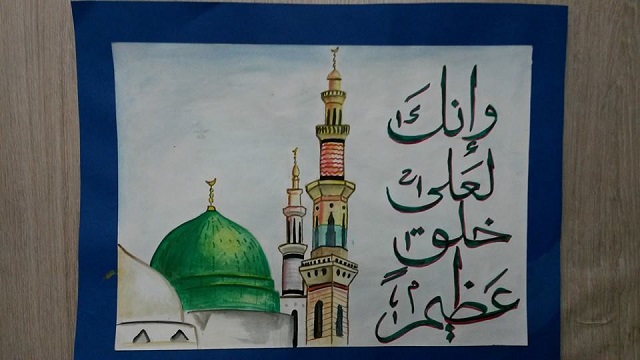 وإنكَ
لَعَلى
خلق
عَظِيمٍ